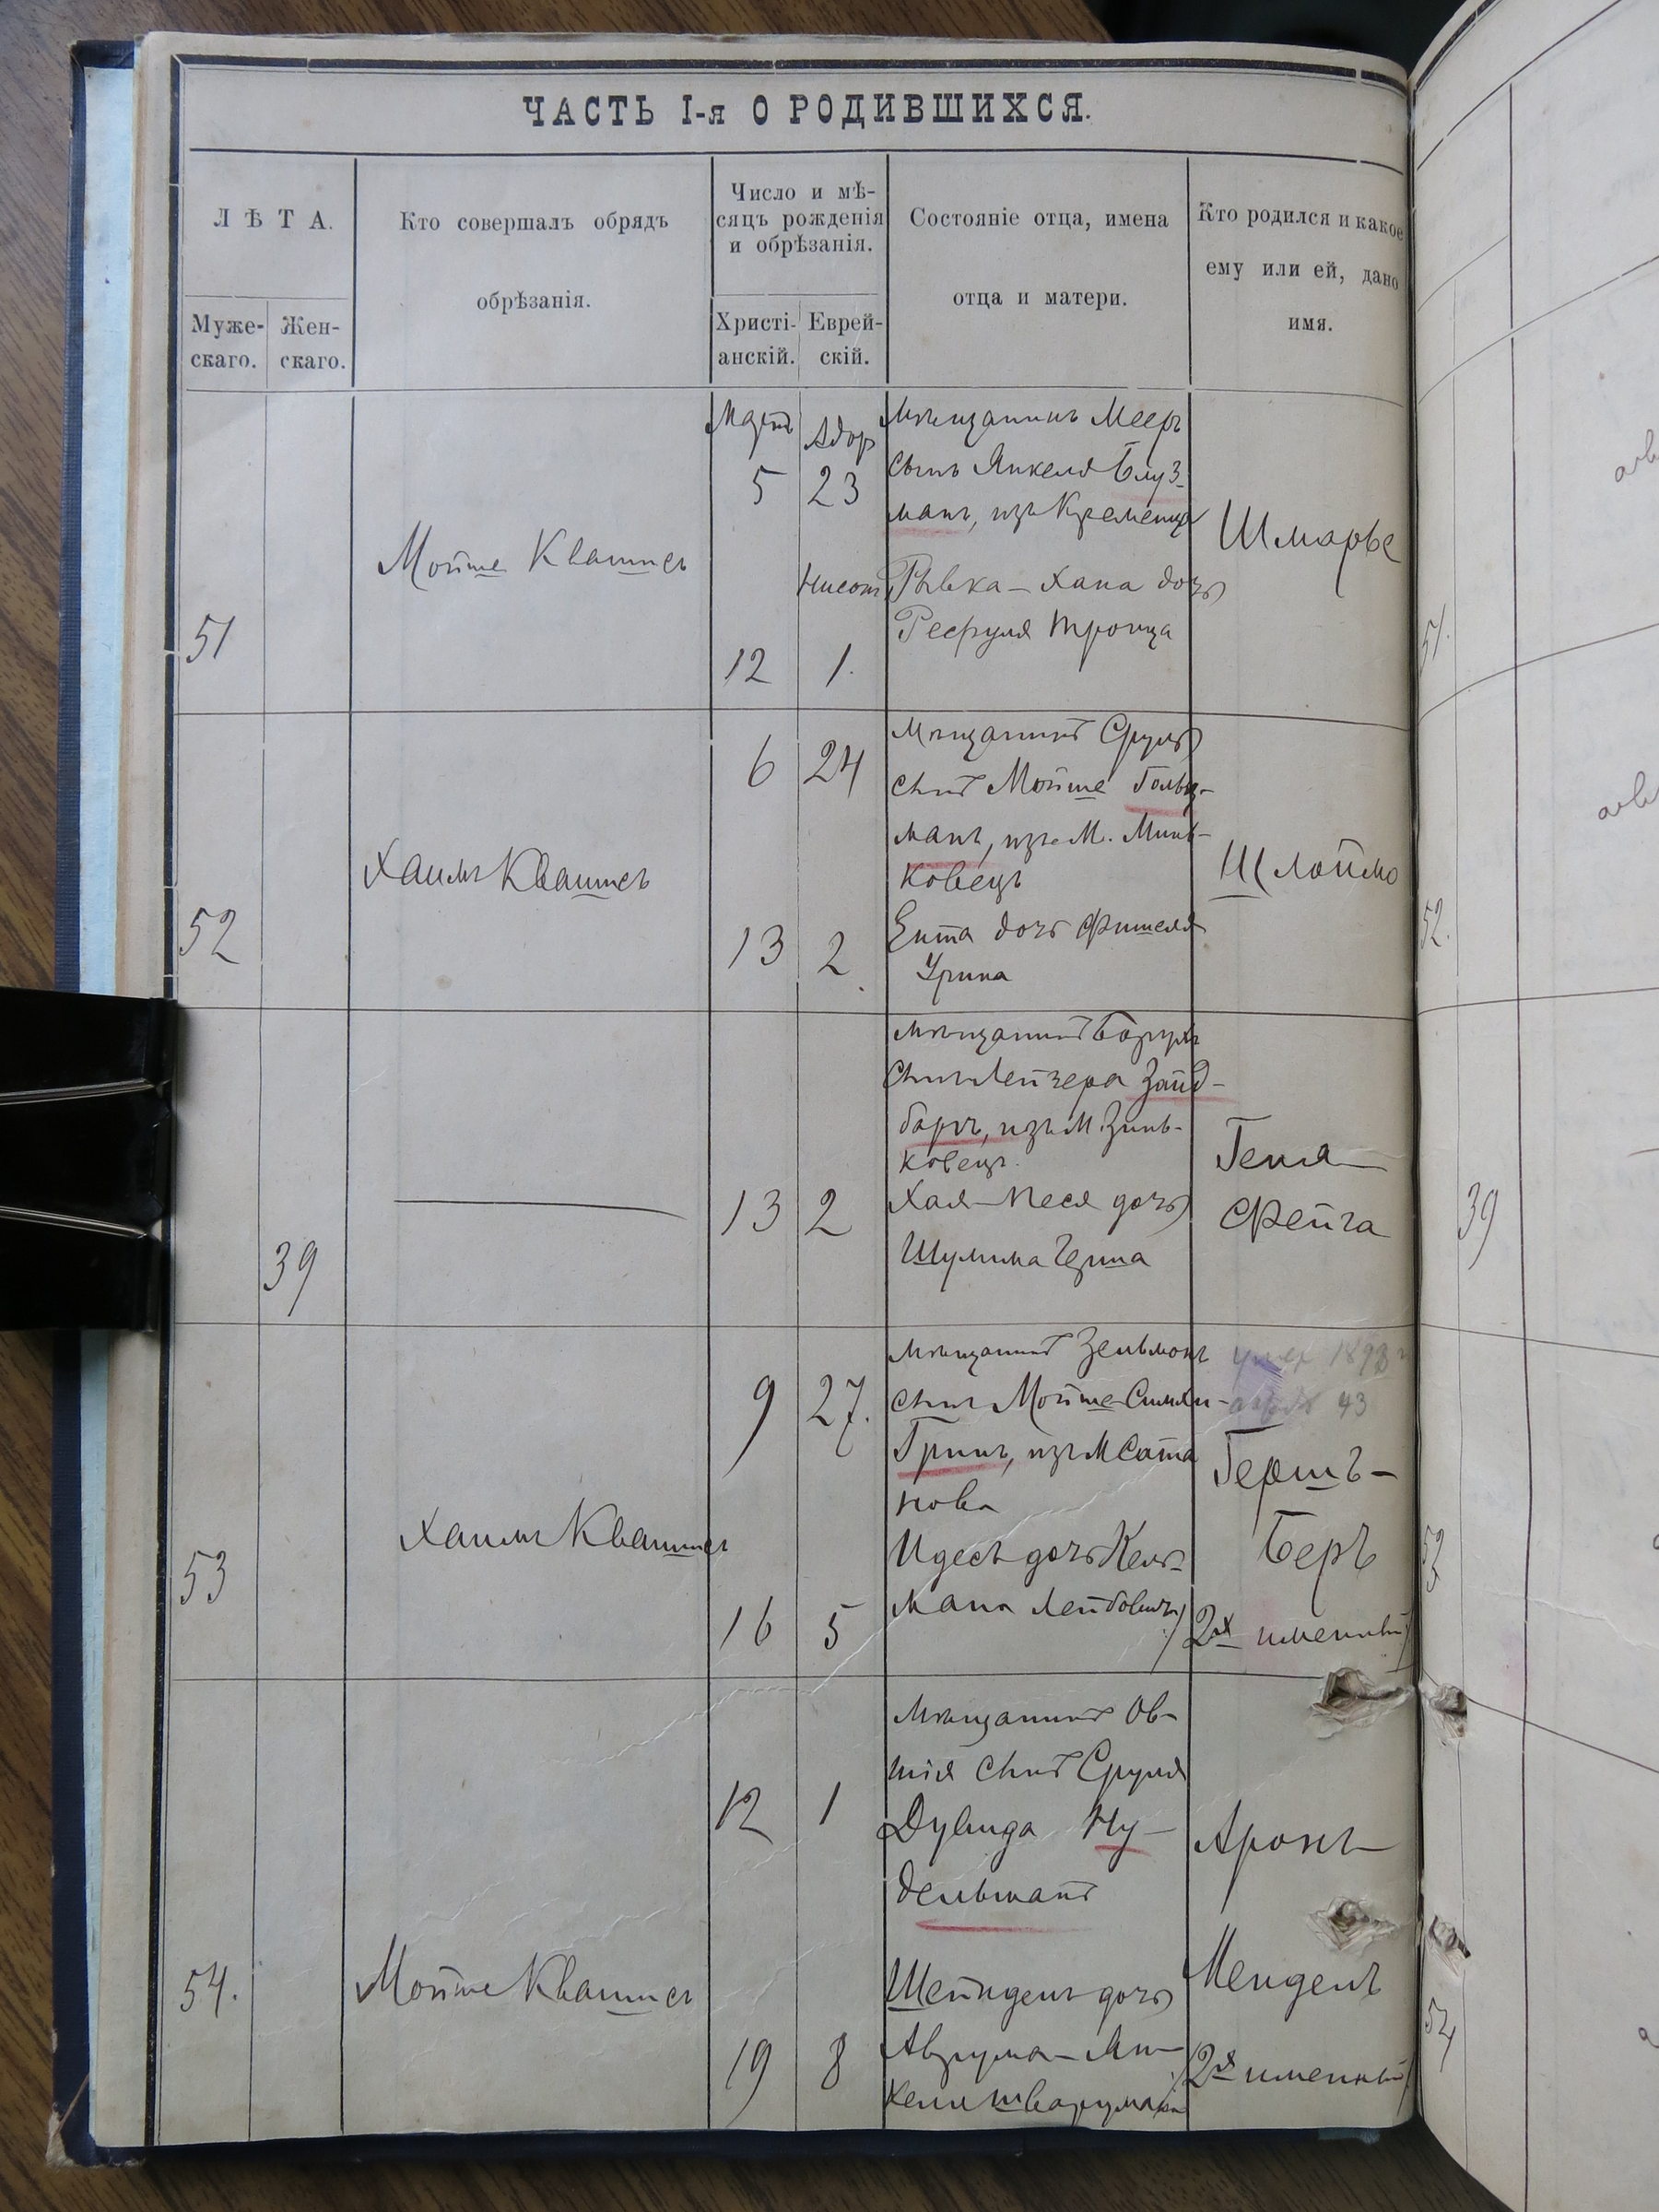 ЧАСТЬ I-я О РОДИВШИХСЯ.
ЛѢТА.
Муже-
скаго.
Жен-
скаго.
Кто совершалъ обрядъ
обрѣзанія.
Число и мѣ-
сяцъ рожденія
и обрѣзанія.
Христі-
анскій.
Еврей-
скій.
Состояніе отца, имена
отца и матери.
Кто родился и какое
ему или ей, дано
имя.
51
Мойше Квашнеъ
Мартъ
5
12
Адор
23
Нисон
1.
Мѣщанинъ Мееръ
сынъ Янкеля Блуз-
манъ, изъ Кременца
Рывка-Хана дочь
Тройца
Шмарье
52
Хаимъ Квашнеъ
6 24
13 2
Мѣщанинъ Сруль
сынъ Мойше Гольц-
манъ, изъ М. Минь-
ковецъ
Ента дочь Фишеля
Урина
Шлоймо
39
13 2
Мѣщанинъ Борухъ
сынъ Лейзера Зайд-
баръ, изъ М. Зинь-
ковецъ.
Хая-Песя дочь
Шулима
Геня
Фейга
53
Хаимъ Квашнеъ
9 27.
16 5
Мѣщанинъ Зельманъ
сынъ Мойше-Симхи
Гринъ, изъ М Сата
нова
Идесъ дочь Кель-
мана Лейбовичъ
умер 1893
43
Гершъ-
Беръ
2х именный
54.
Мойше Квашнеъ
12 1
19 8
Мѣщанинъ Ов-
шія сынъ Сруля
Дувида Ну-
дельманъ
Шейндель дочь
Аврума-Ян-
келя Шварцмана
Аронъ
Мендель
2х именный
51.
52.
39
53
54